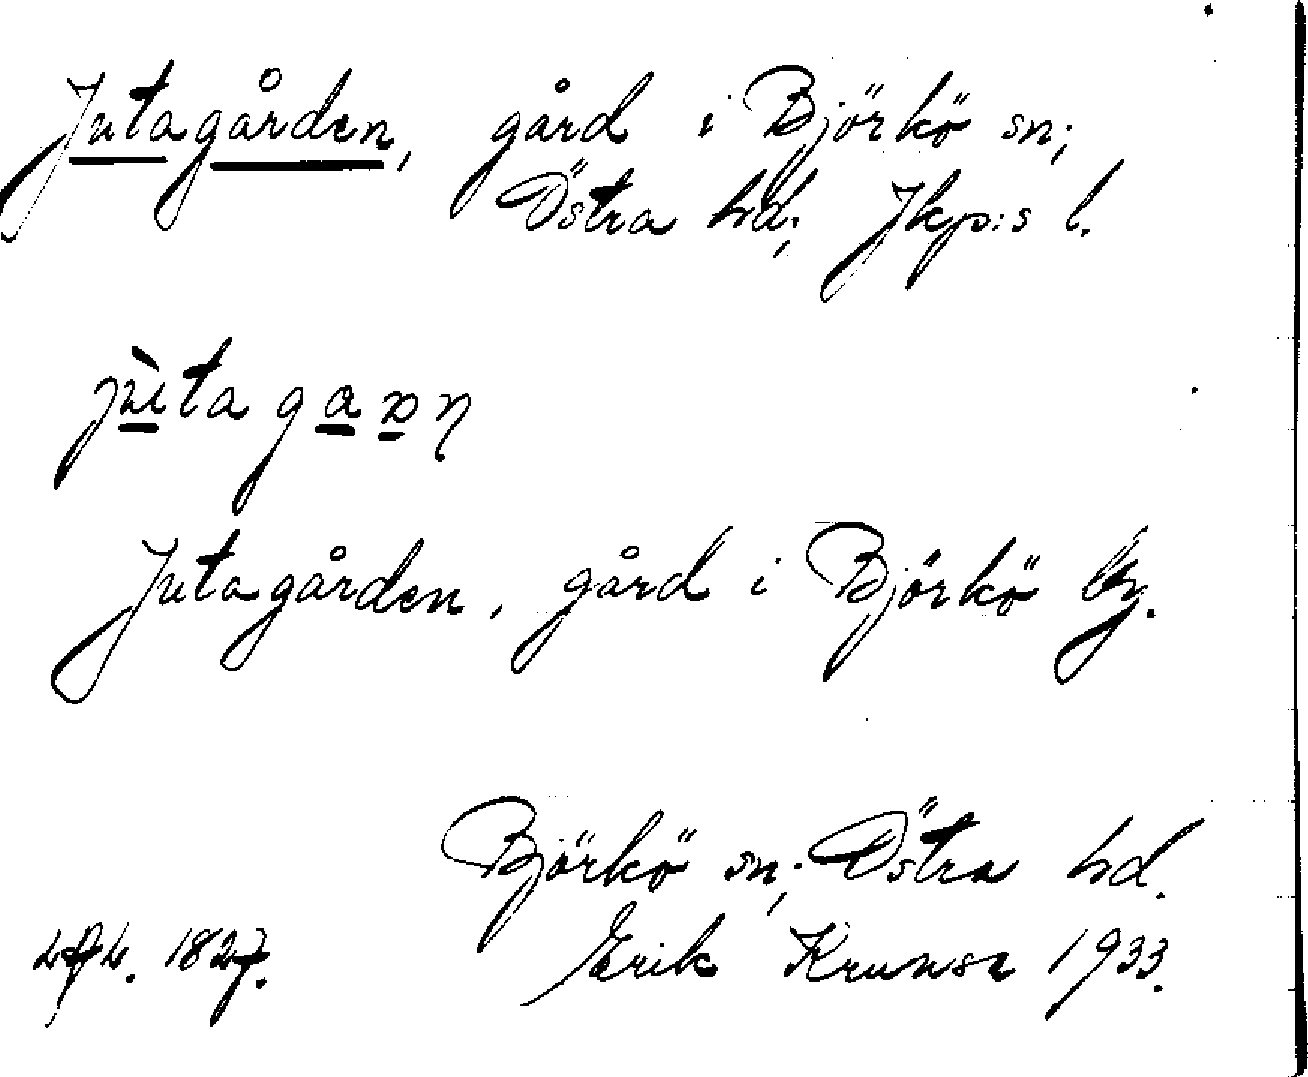 Jutagården, gård i Björkö sn;
Östra hd; Jkp:s l.
jùta gaxn
Jutagården, gård i Björkö by.
Björkö sn; Östra hd.
1827. Erik Krunse 1933.